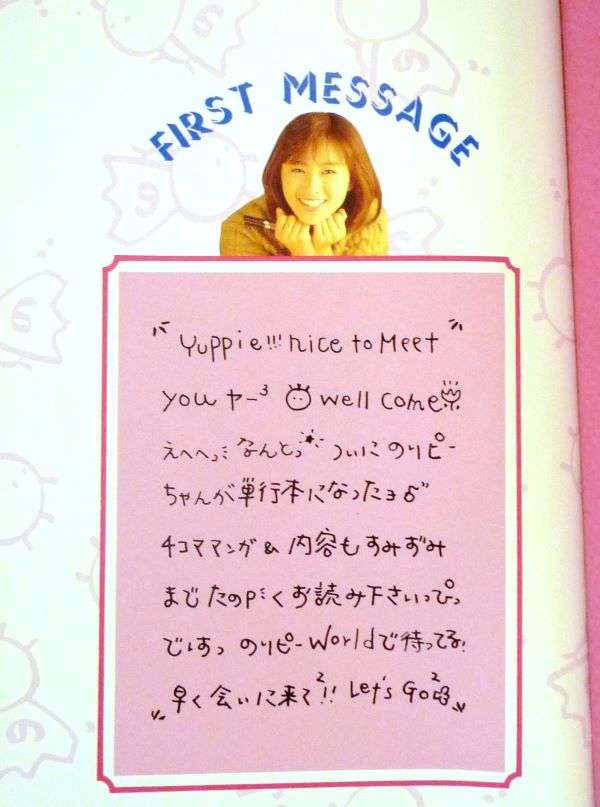 FIRST MESSAGE
"Yuppie!!! nice to Meet
you ヤー³ well come
えへへっ なんとっ ついに のりピー
ちゃんが単行本になったョ♂"
4コママンガ& 内容もすみずみ
まで たのpく お読み下さいっぴっ
ではっ のりピーWorldで待ってる!
早く会いに来て²!! Let's Go²"